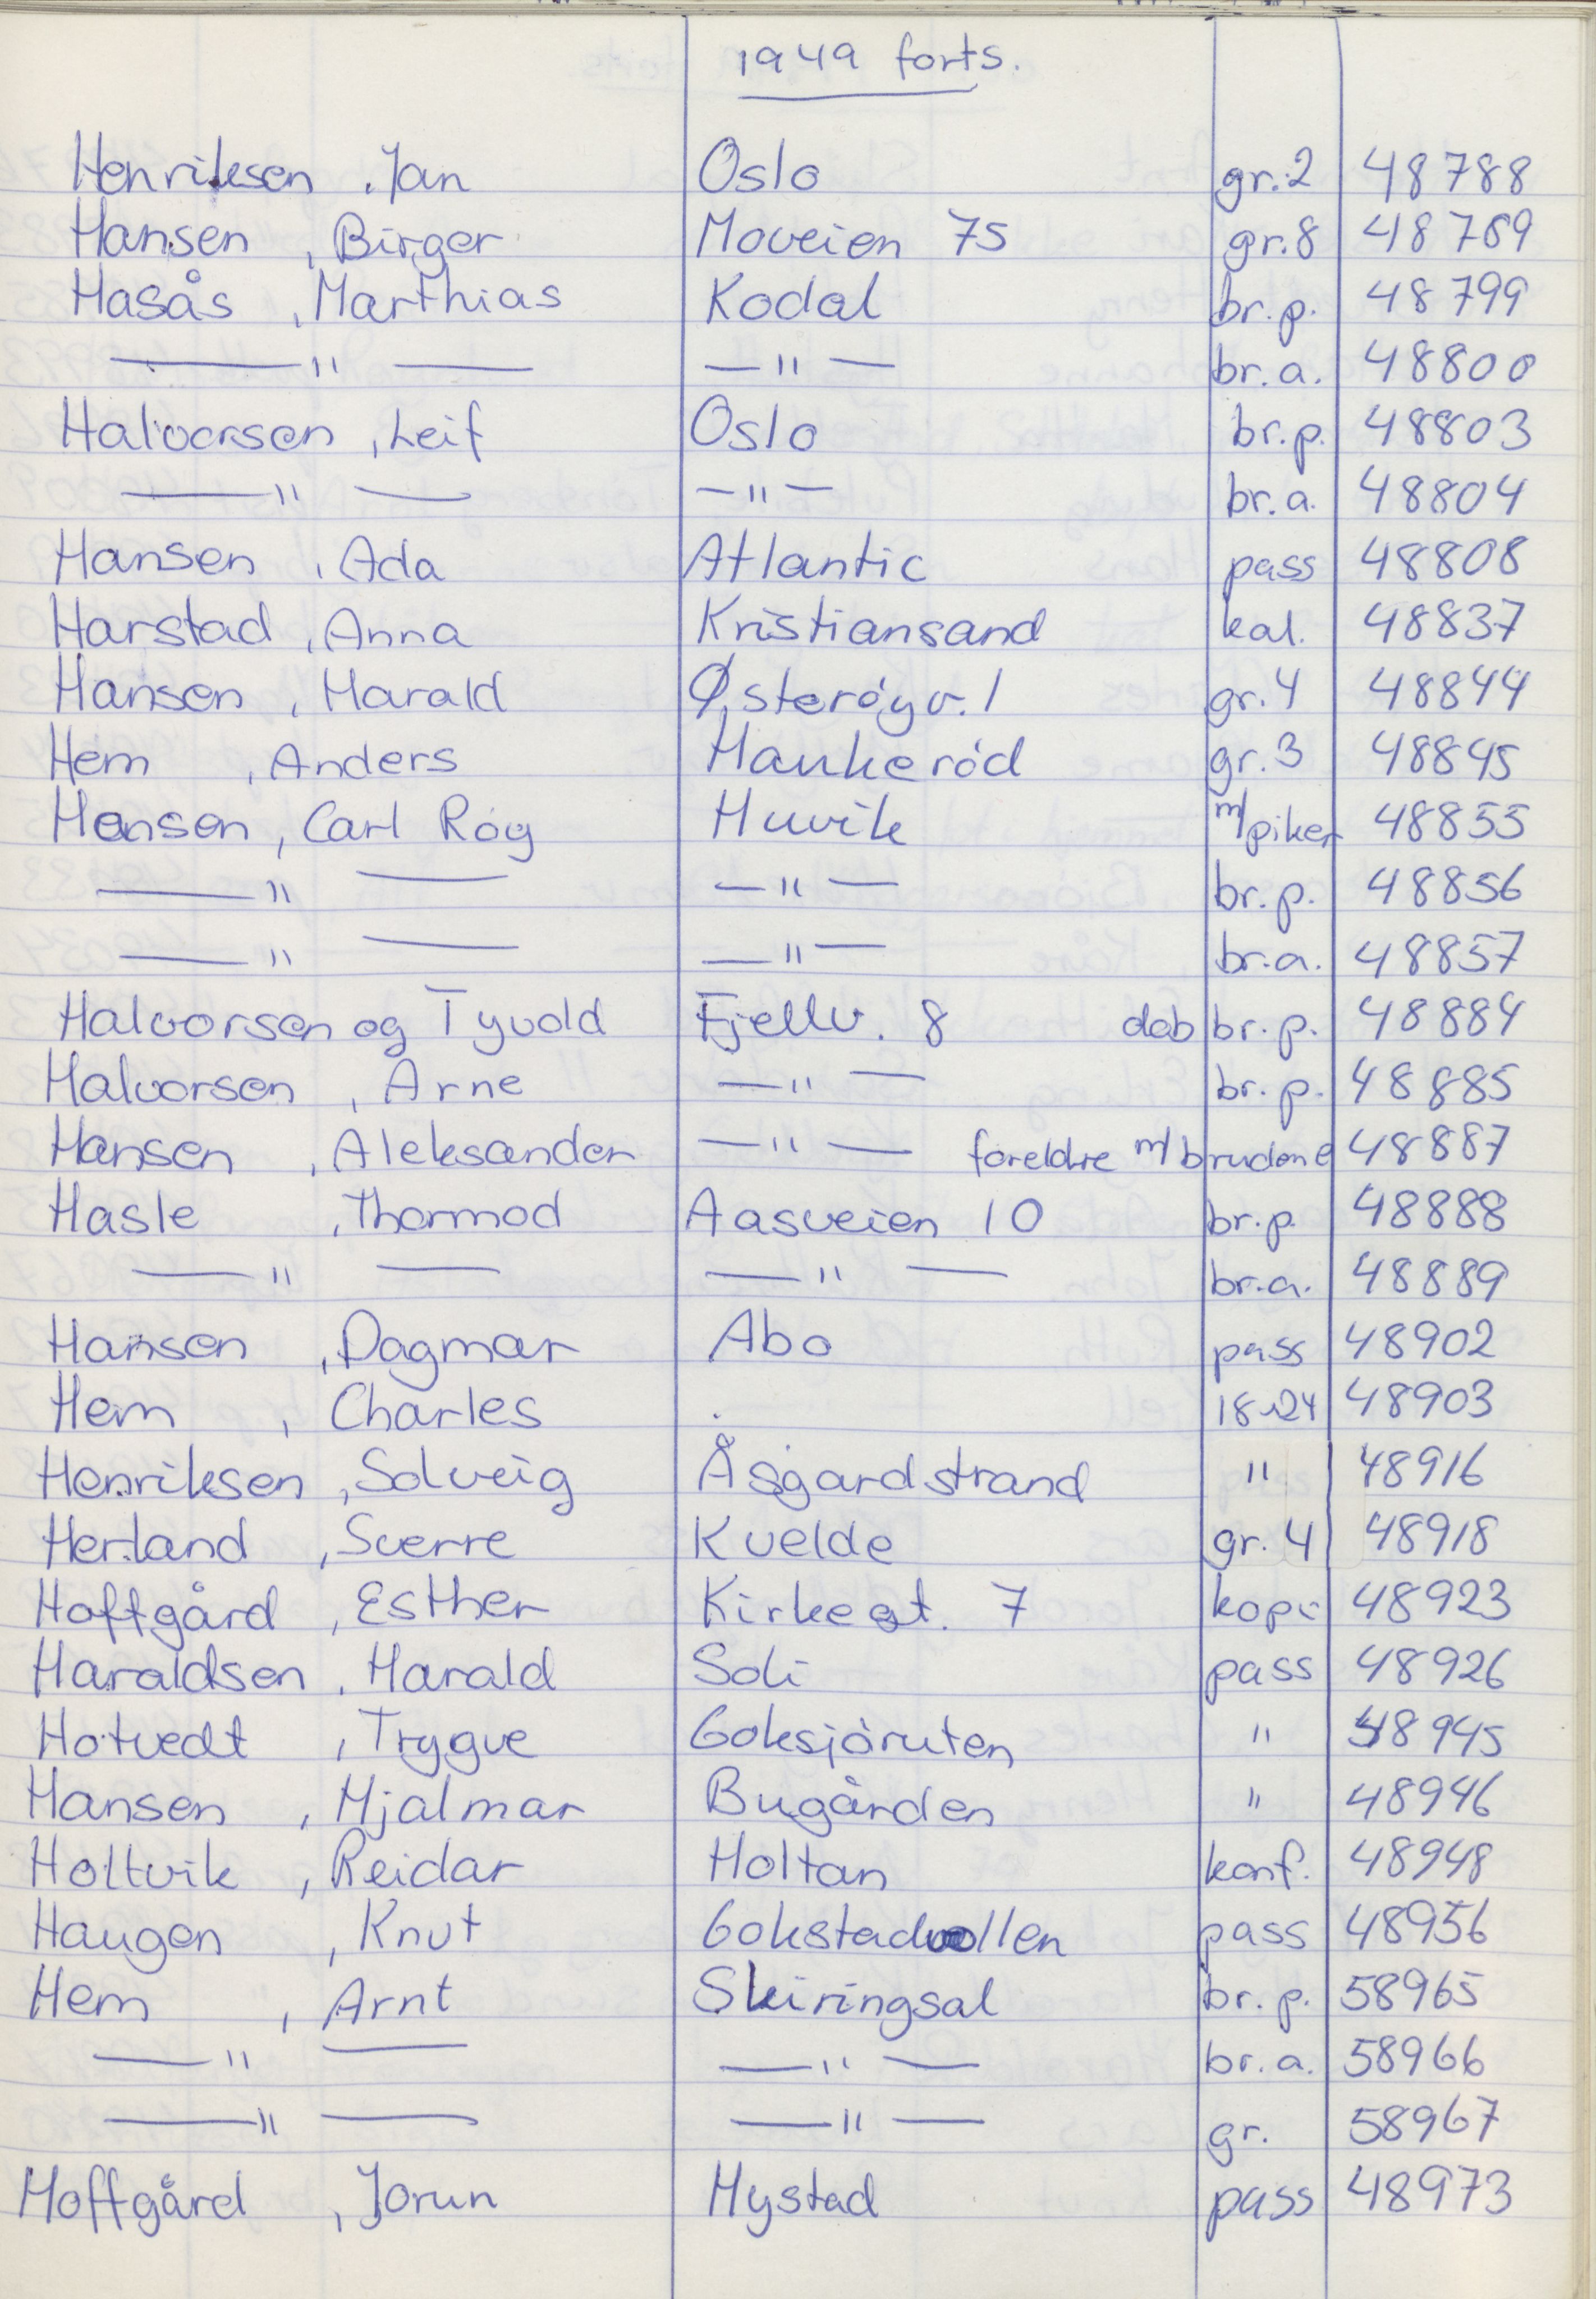 1949 forts.
Henriksen , Jan Oslo gr. 2 48788
Hansen , Birger Moveien 75 gr. 8 48789
Hasås , Marthias Kodal br. p. 48799
— " — — " — br. a. 48800
Halvorsen , Leif Oslo br. p. 48803
— " — — " — br. a. 48804
Hansen , Ada Atlantic pass 48808
Harstad , Anna Kristiansand kal. 48837
Hansen , Harald Østerøyv. 1 gr. 4 48844
Hem , Anders Haukerød gr. 3 48845
Hansen , Carl Roy Huvik m/piker 48855
— " — — " — br. p. 48856
— " — — " — br. a. 48857
Halvorsen og Tyvold Fjellv. 8 dob br. p. 48884
Halvorsen , Arne — " — br. p. 48885
Hansen , Aleksander — " — foreldre m/brudene 48887
Hasle , Thormod Aasveien 10 br. p. 48888
— " — — " — br. a. 48889
Hansen , Dagmar Abo pass 48902
Hem , Charles 18x24 48903
Henriksen , Solveig Åsgardstrand " 48916
Herland , Sverre Kvelde gr. 4 48918
Hoffgård , Esther Kirkegt. 7 kopi 48923
Haraldsen , Harald Soli pass 48926
Hotvedt , Trygve Goksjøruten " 48945
Hansen , Hjalmar Bugården " 48946
Holtvik , Reidar Holtan konf. 48948
Haugen , Knut Gokstadvollen pass 48956
Hem , Arnt Skiringsal br. p. 58965
— " — — " — br. a. 58966
— " — — " — gr. 58967
Hoffgård , Jorun Hystad pass 48973